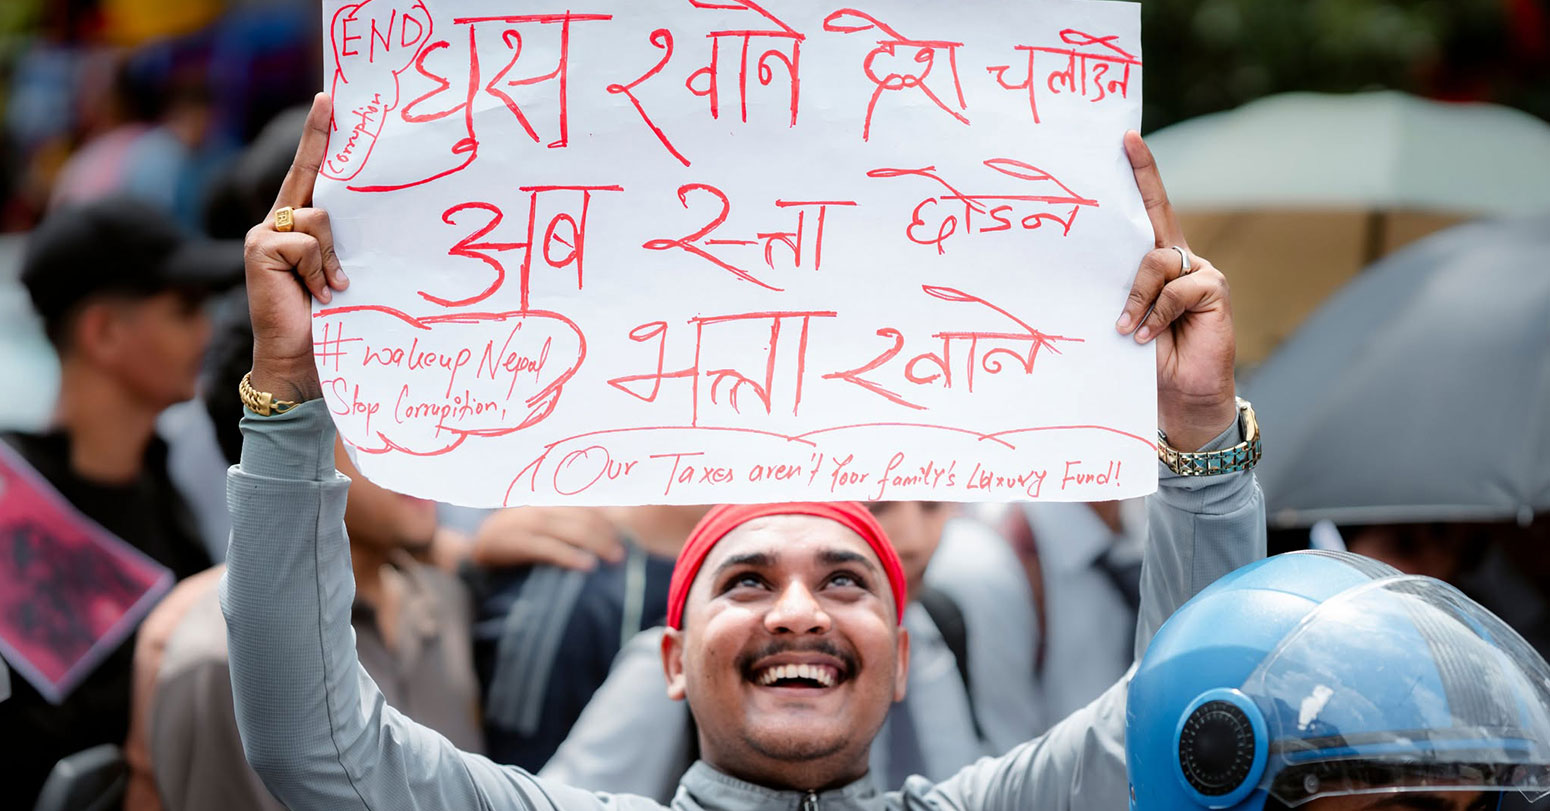 END
Corruption
घुस खाने देश चलाउने
अब रत्ता छोडने
भत्ता खाने
#wakeup Nepal
Stop Corrupition,!
Our Taxes aren't Your family's Luxury Fund!